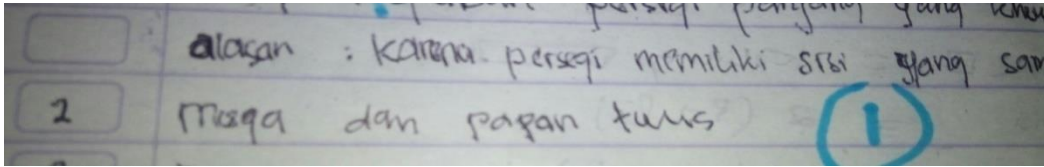 persegi panjang yang
alasan : Karena persegi memiliki sisi yang sam
2 Meja dan papan tulis 1